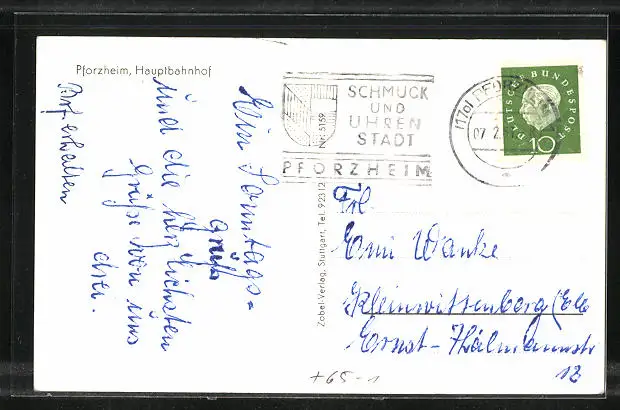 Pforzheim, Hauptbahnhof
Ein Sonntags-
gruß
und die herzlichsten
Grüße von uns
drei.
Brf. erhalten
SCHMUCK
UND
UHREN
STADT
PFORZHEIM
Nr. 5159
(17a) PFORZHEIM
07.2.
DEUTSCHE BUNDESPOST
10
Zobel-Verlag, Stuttgart, Tel. 92312
Frl.
Erni Wanke
Kleinwittenberg (Elbe
Ernst-Thälmannstr
12
+65-1